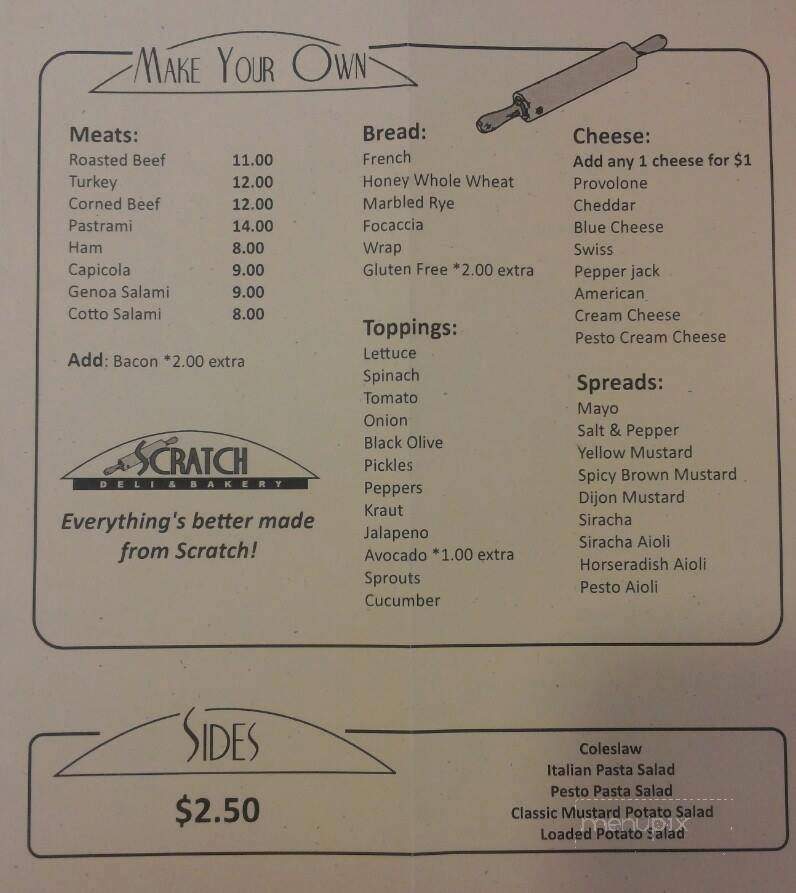 MAKE YOUR OWN
Meats:
Roasted Beef 11.00
Turkey 12.00
Corned Beef 12.00
Pastrami 14.00
Ham 8.00
Capicola 9.00
Genoa Salami 9.00
Cotto Salami 8.00
Add: Bacon *2.00 extra
SCRATCH
DELI & BAKERY
Everything's better made
from Scratch!
Bread:
French
Honey Whole Wheat
Marbled Rye
Focaccia
Wrap
Gluten Free *2.00 extra
Toppings:
Lettuce
Spinach
Tomato
Onion
Black Olive
Pickles
Peppers
Kraut
Jalapeno
Avocado *1.00 extra
Sprouts
Cucumber
Cheese:
Add any 1 cheese for $1
Provolone
Cheddar
Blue Cheese
Swiss
Pepper jack
American
Cream Cheese
Pesto Cream Cheese
Spreads:
Mayo
Salt & Pepper
Yellow Mustard
Spicy Brown Mustard
Dijon Mustard
Siracha
Siracha Aioli
Horseradish Aioli
Pesto Aioli
SIDES
$2.50
Coleslaw
Italian Pasta Salad
Pesto Pasta Salad
Classic Mustard Potato Salad
Loaded Potato Salad
menupix